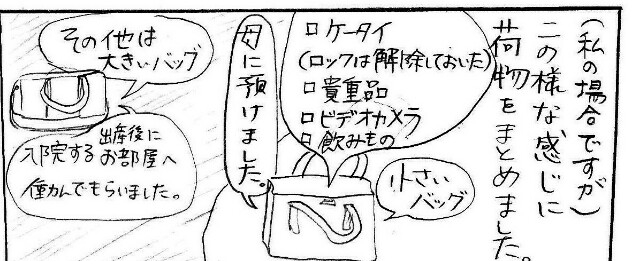 (私の場合ですが)
この様な感じに
荷物をまとめました。
ロケータイ
(ロックは解除しておいた)
□貴重品
□ビデオカメラ
□飲みもの
小さい
バッグ
母に預けました。
その他は
大きいバッグ
出産後に
入院するお部屋へ
運んでもらいました。